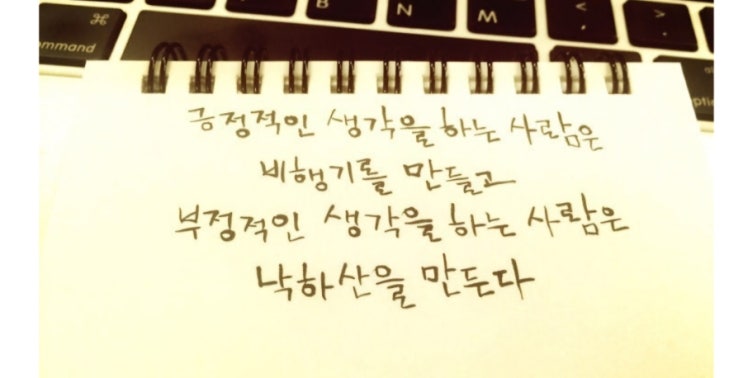 ⌘ B N M < >
command
긍정적인 생각을 하는 사람은
비행기를 만들고
부정적인 생각을 하는 사람은
낙하산을 만든다